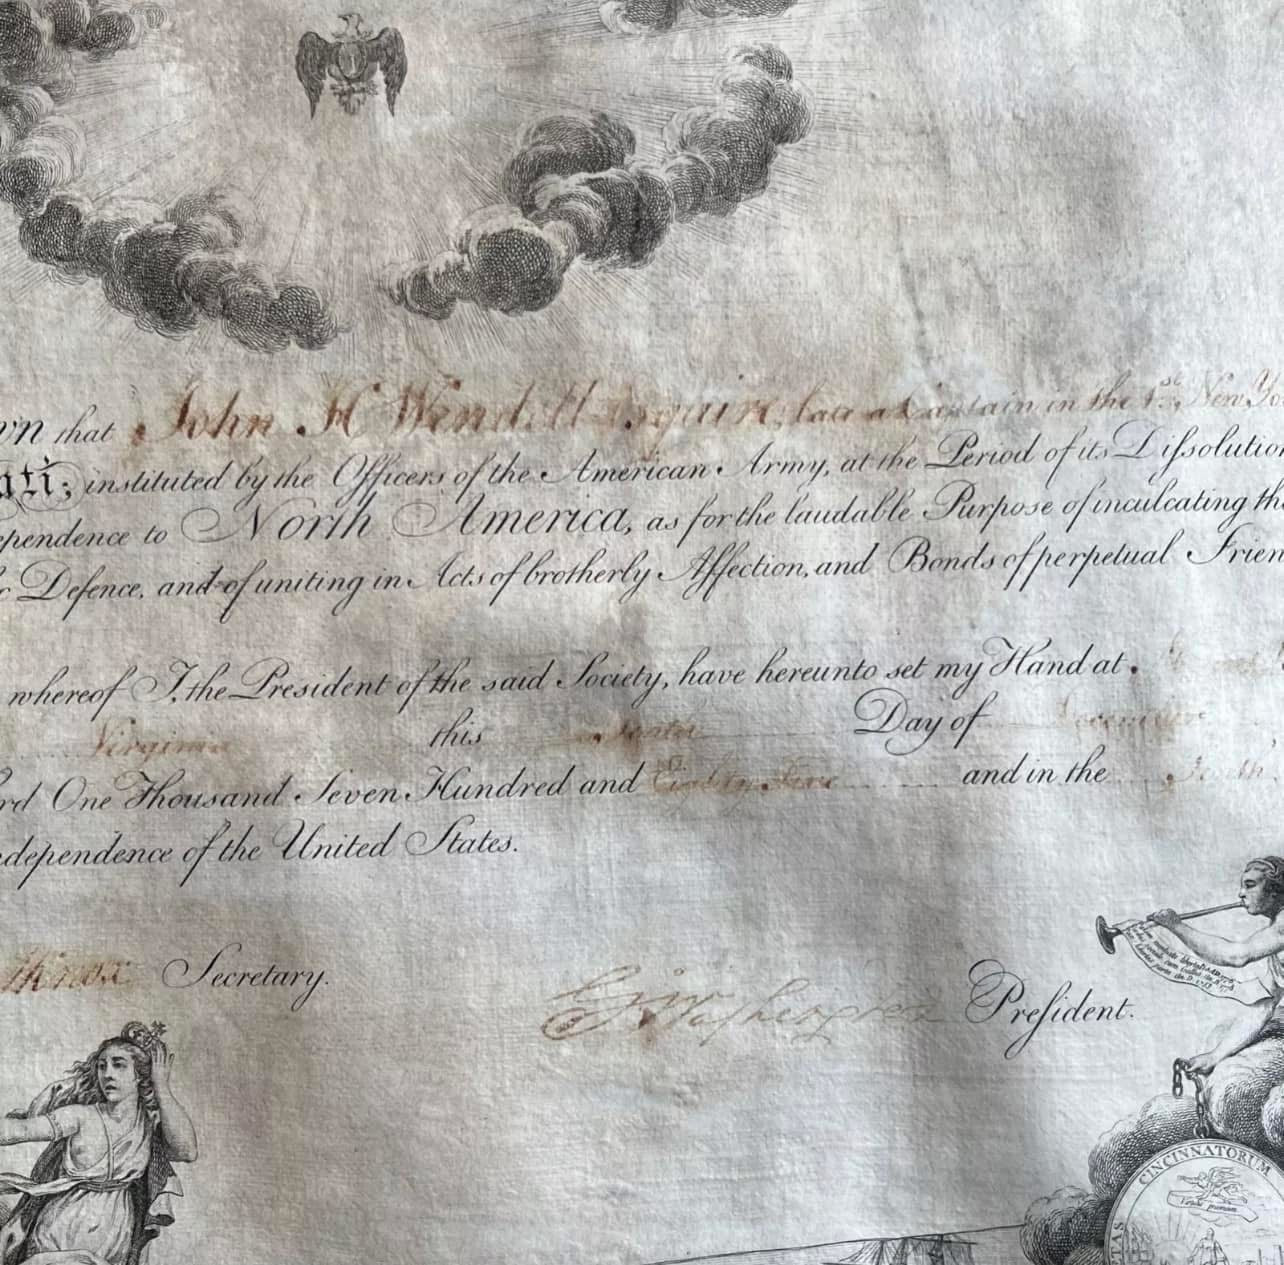 wn that John H Wendell Esquire, late a Captain in the 1st New Yo
ati; instituted by the Officers of the American Army, at the Period of its Dissolution
ependence to North America, as for the laudable Purpose of inculcating the
c Defence, and of uniting in Acts of brotherly Affection, and Bonds of perpetual Frien
whereof I, the President of the said Society, have hereunto set my Hand at
Virginia this Tenth Day of December
rd One Thousand Seven Hundred and Eighty Five and in the Tenth
ndependence of the United States.
HKnox Secretary.
G Washington President.
CINCINNATORUM